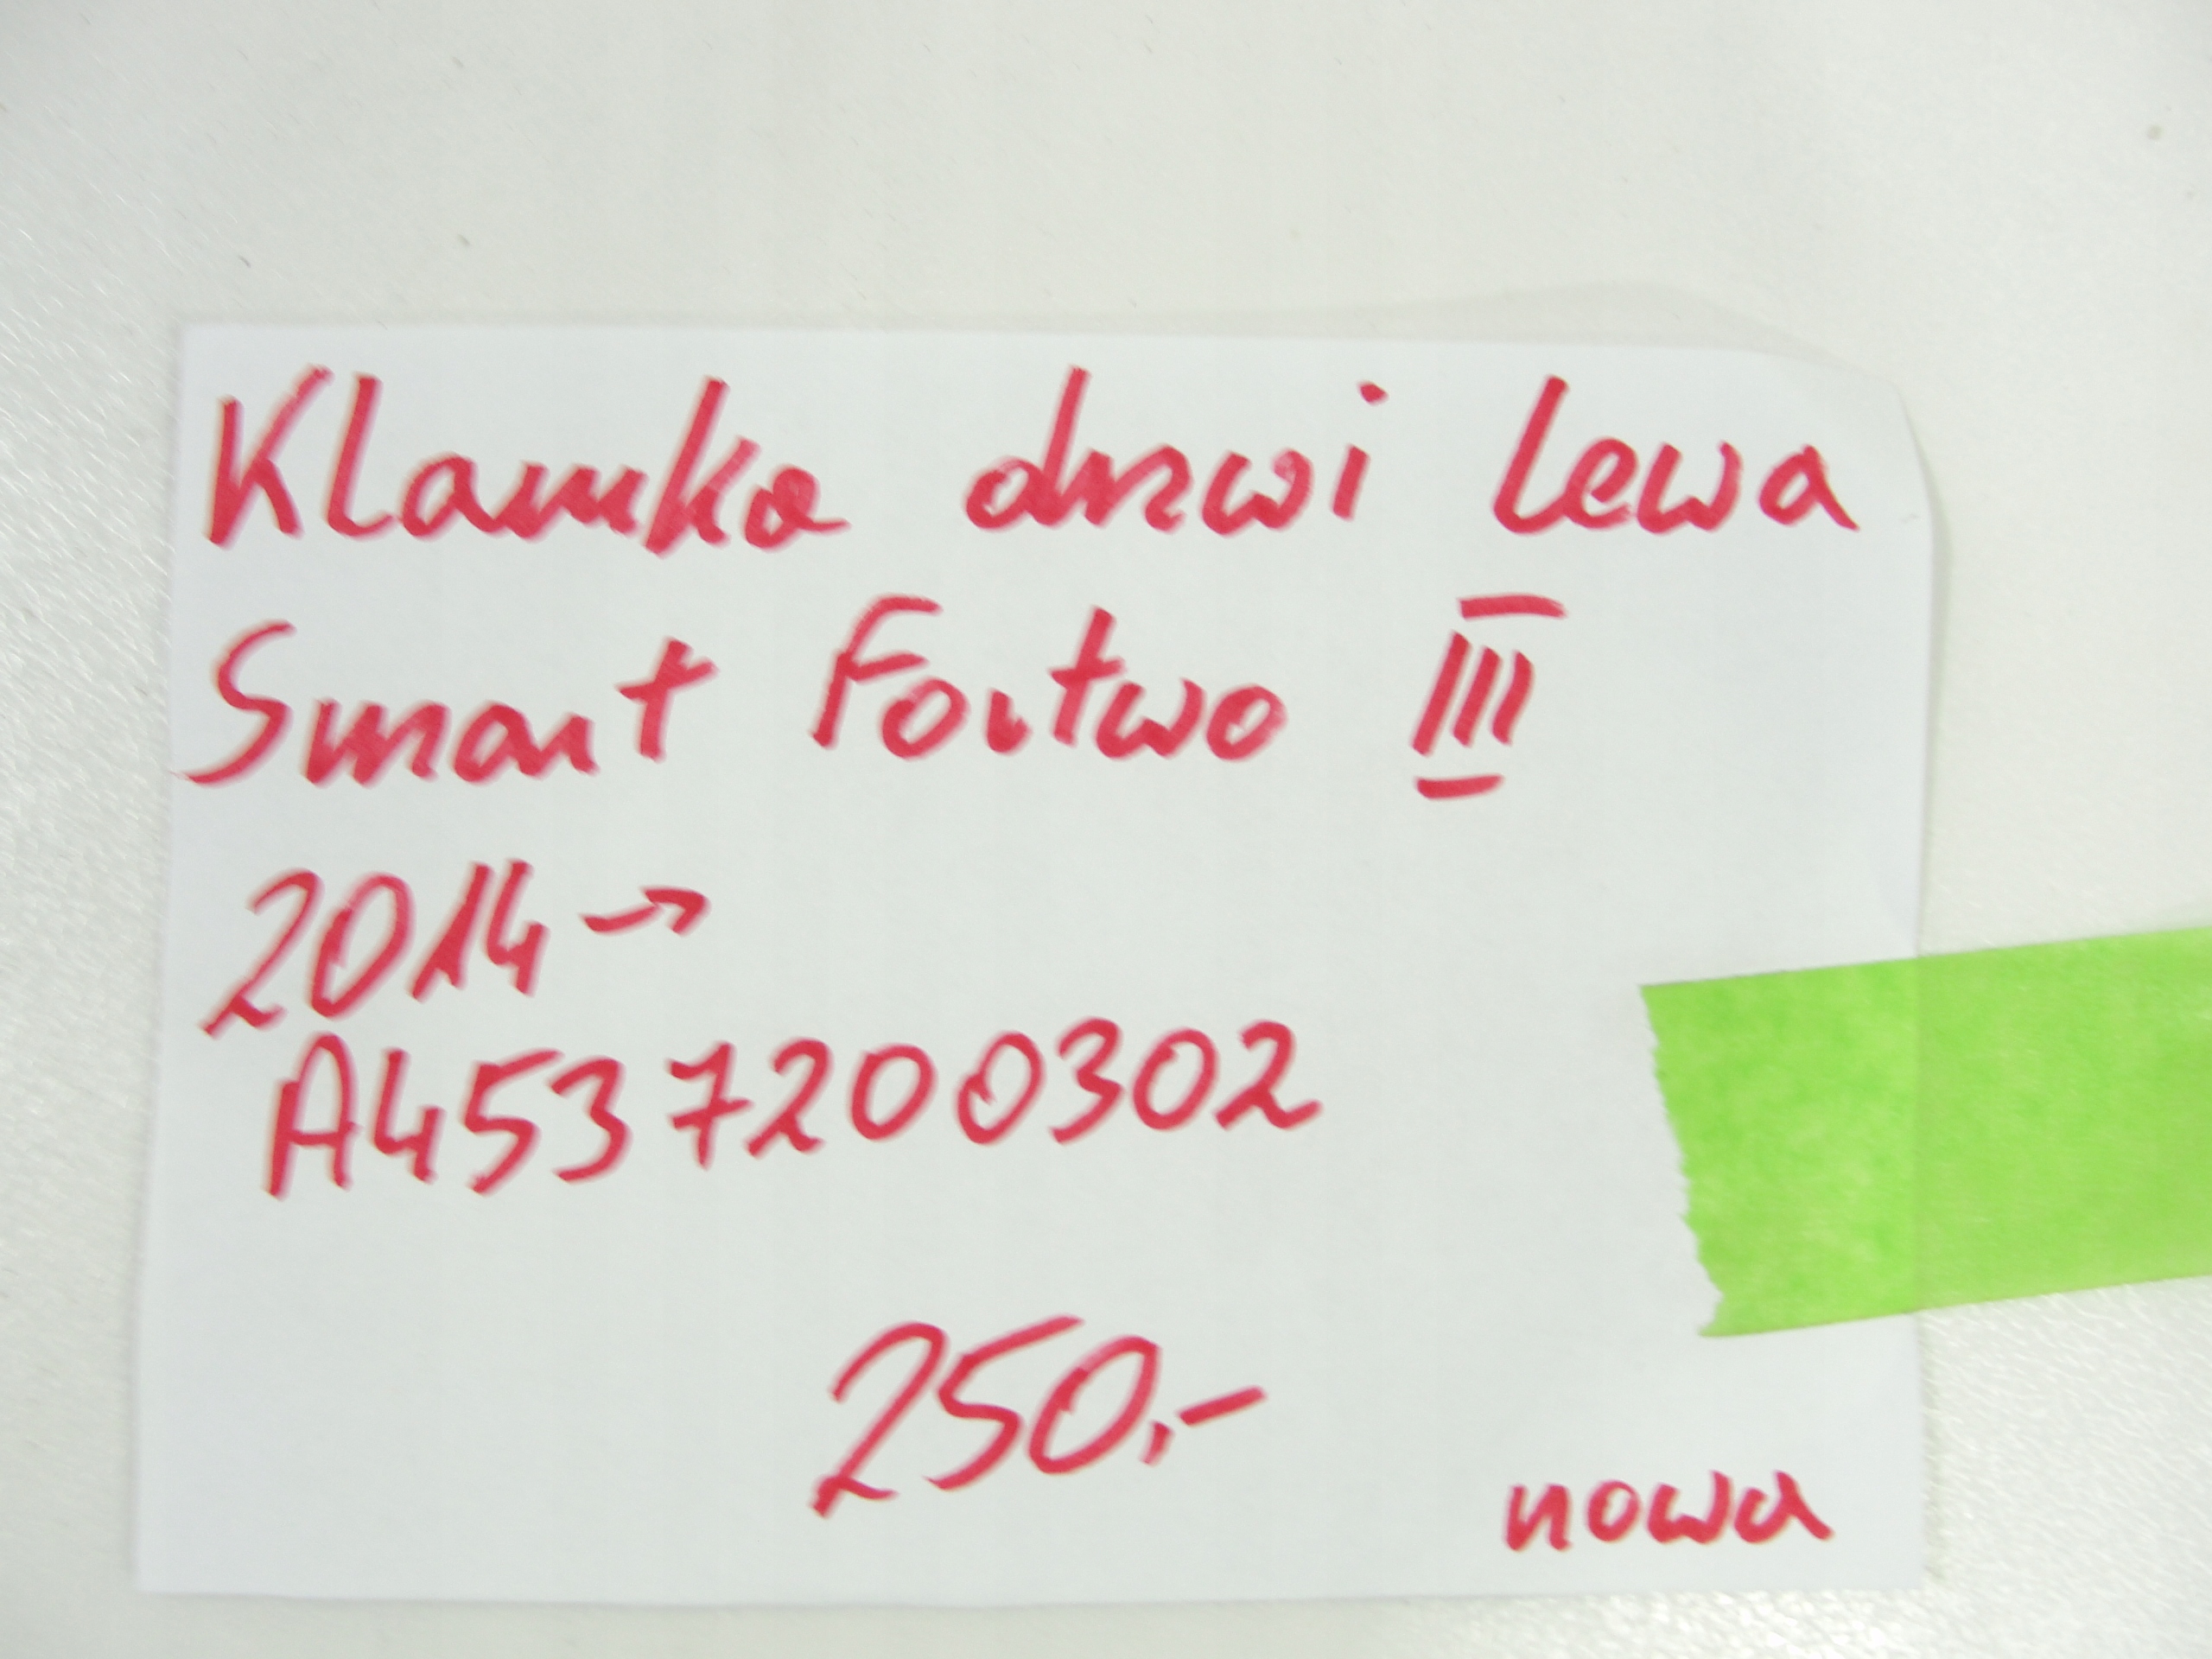 Klamka drzwi lewa
Smart Fortwo III
2014 →
A4537200302
250,-
nowa